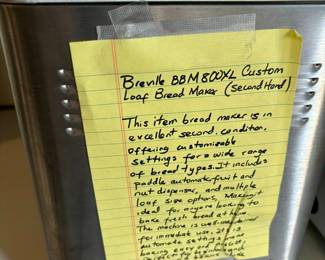 Breville BBM800XL Custom
Loaf Bread Maker (Second Hand)
This item bread maker is in
excellent second. condition,
offering customizable
settings for a wide range
of bread types. It includes
paddle automatic fruit and
nut dispenser, and multiple
loaf size options, Making
ideal for anyone looking to
bake fresh bread at home.
The machine is well-maintained
for immediate use,
automate settings
baking easy and